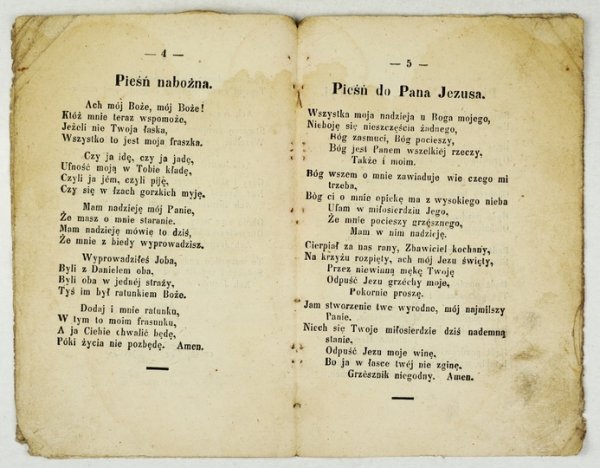 — 4 —
Pieśń nabożna.
Ach mój Boże, mój Boże!
Któż mnie teraz wspomoże,
Jeżeli nie Twoja łaska,
Wszystko to jest moja fraszka.
Czy ja idę, czy ja jadę,
Ufność moją w Tobie kładę,
Czyli ja jém, czyli piję,
Czy się w łzach gorzkich myję.
Mam nadzieję mój Panie,
Że masz o mnie staranie.
Mam nadzieję mówię to dziś,
Że mnie z biedy wyprowadzisz.
Wyprowadziłeś Joba,
Byli z Danielem oba.
Byli oba w jednéj straży,
Tyś im był ratunkiem Boże.
Dodaj i mnie ratunku,
W tym to moim frasunku,
A ja Ciebie chwalić będę,
Póki życia nie pozbędę. Amen.
— 5 —
Pieśń do Pana Jezusa.
Wszystka moja nadzieja u Boga mojego,
Nieboję się nieszczęścia żadnego,
Bóg zasmuci, Bóg pocieszy,
Bóg jest Panem wszelkiéj rzeczy,
Także i moim.
Bóg wszem o mnie zawiaduje wie czego mi
trzeba,
Bòg ci o mnie opickę ma z wysokiego nieba
Ufam w miłosierdziu Jego,
Że mnie pocieszy grzęsznego,
Mam w nim nadzieję.
Cierpiał za nas rany, Zbawiciel kochany,
Na krzyżu rozpięty, ach mój Jezu święty,
Przez niewinną mękę Twoję
Odpuść Jezu grzéchy moje,
Pokornie proszę.
Jam stworzenie twe wyrodne, mój najmilszy
Panie,
Niech się Twoje miłosierdzie dziś nademną
stanie,
Odpuść Jezu moje winę,
Bo ja w łasce twéj nie zginę.
Grzésznik niegodny. Amen.